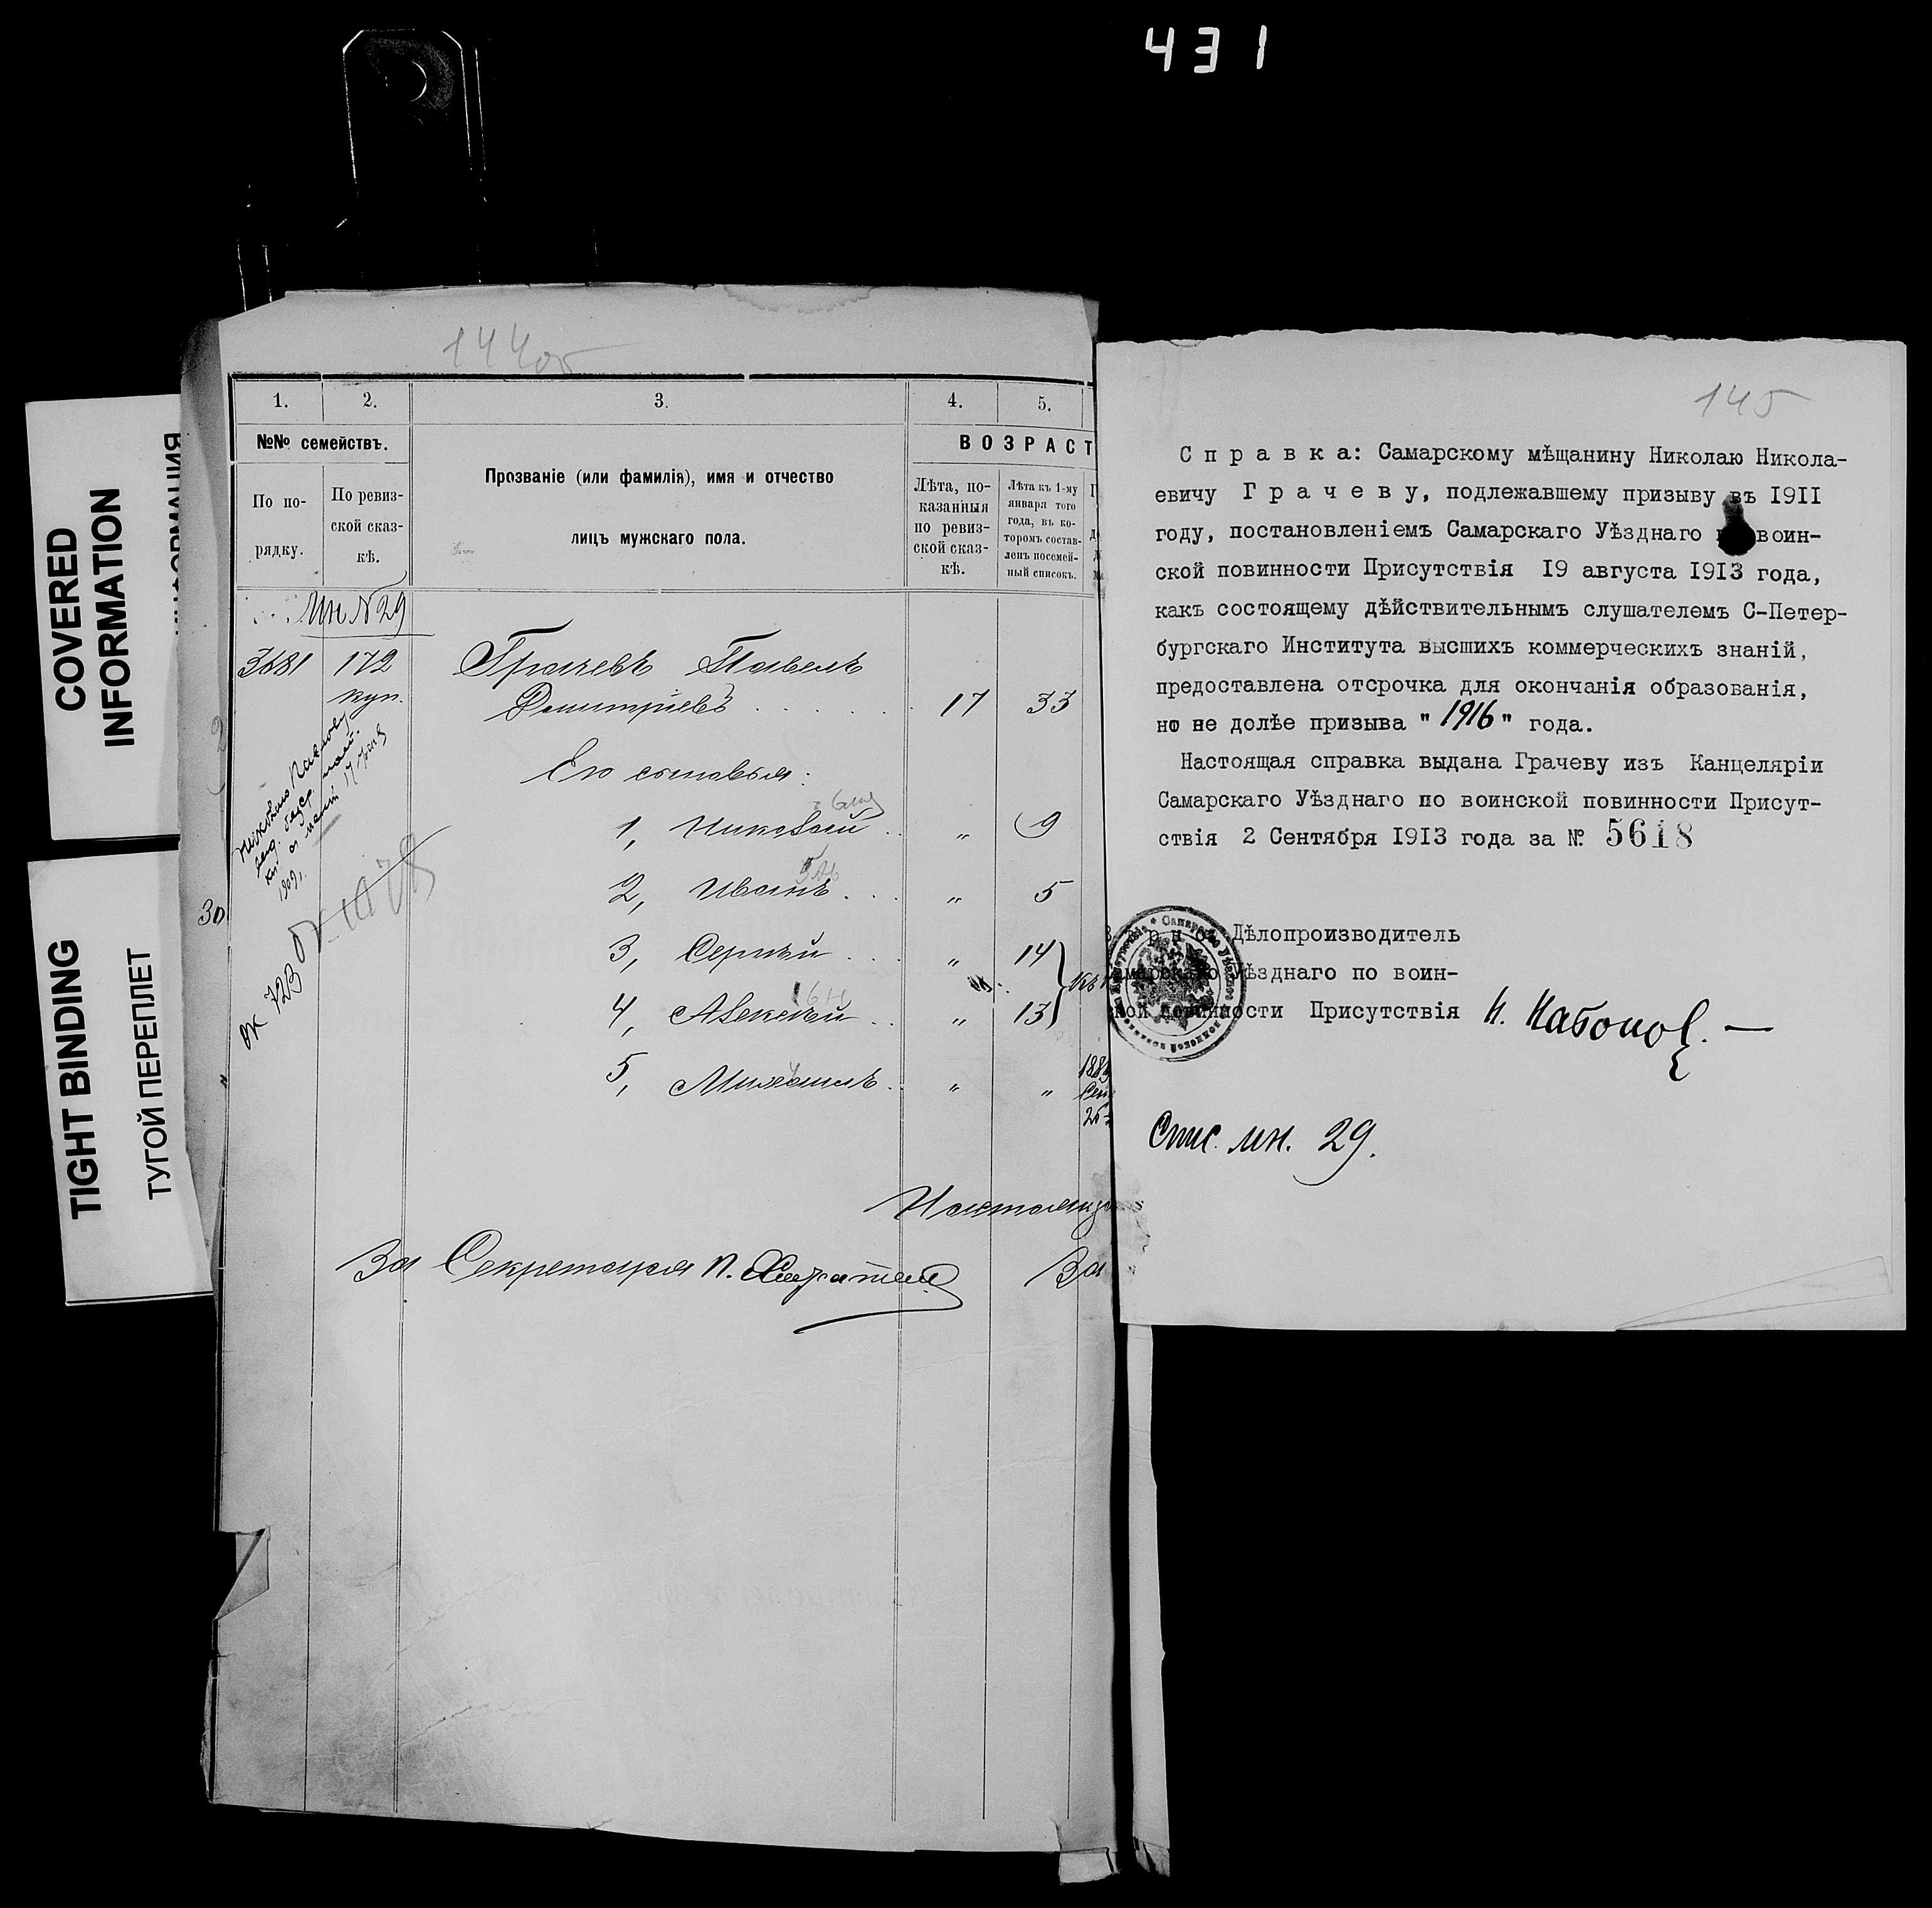 431
COVERED
INFORMATION
TIGHT BINDING
ТУГОЙ ПЕРЕПЛЕТ
144об
1. 2. 3. 4. 5.
№№ семействъ.
По по-
рядку.
По ревиз-
ской сказ-
кѣ.
Прозваніе (или фамилія), имя и отчество
лицъ мужскаго пола.
ВОЗРАСТ
Лѣта, по-
казанныя
по ревиз-
ской сказ-
кѣ.
Лѣта къ 1-му
января того
года, въ ко-
торомъ состав-
ленъ посемей-
ный списокъ.
Мн №29
3681 172 Грачевъ Павелъ
куп. Димитріевъ 17 33
Его сыновья:
1, Николай „ 9
2, Иванъ „ 5
3, Сергѣй „ 14
4, Алексѣй „ 13
5, Михаилъ „ „
1909 г.
ОК 723
30
За Секретаря П.
За
145
Справка: Самарскому мѣщанину Николаю Никола-
евичу Грачеву, подлежавшему призыву въ 1911
году, постановленіемъ Самарскаго Уѣзднаго воин-
ской повинности Присутствія 19 августа 1913 года,
какъ состоящему дѣйствительнымъ слушателемъ С-Петер-
бургскаго Института высшихъ коммерческихъ знаній,
предоставлена отсрочка для окончанія образованія,
но не долѣе призыва "1916" года.
Настоящая справка выдана Грачеву изъ Канцеляріи
Самарскаго Уѣзднаго по воинской повинности Присут-
ствія 2 Сентября 1913 года за № 5618
Дѣлопроизводитель
Самарскаго Уѣзднаго по воин-
ской повинности Присутствія
Спис. мн. 29.